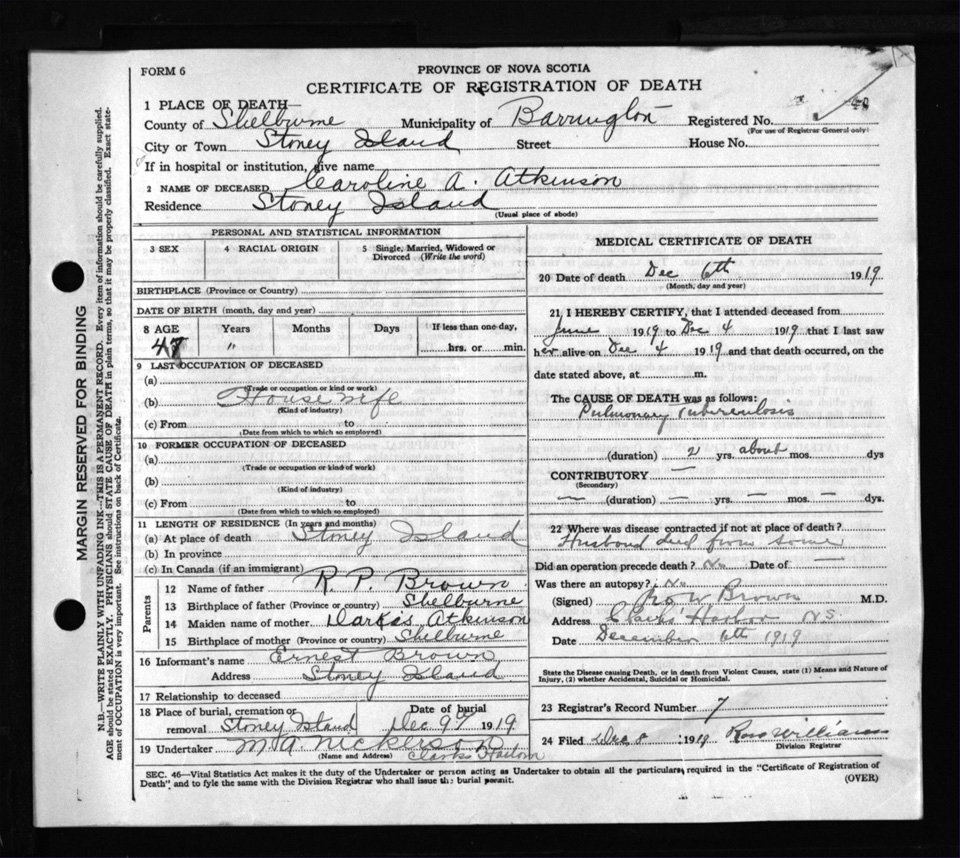 FORM 6
PROVINCE OF NOVA SCOTIA
CERTIFICATE OF REGISTRATION OF DEATH
1 PLACE OF DEATH—
County of Shelburne Municipality of Barrington Registered No.
(For use of Registrar General only)
City or Town Stoney Island Street House No.
If in hospital or institution, give name
2 NAME OF DECEASED Caroline A. Atkinson
Residence Stoney Island
(Usual place of abode)
PERSONAL AND STATISTICAL INFORMATION
3 SEX 4 RACIAL ORIGIN 5 Single, Married, Widowed or Divorced (Write the word)
BIRTHPLACE (Province or Country)
DATE OF BIRTH (month, day and year)
8 AGE Years Months Days If less than one day,
47 " hrs. or min.
9 LAST OCCUPATION OF DECEASED
(a)
(Trade or occupation or kind or work)
(b) House wife
(Kind of industry)
(c) From to
(Date from which to which so employed)
10 FORMER OCCUPATION OF DECEASED
(a)
(Trade or occupation or kind of work)
(b)
(Kind of industry)
(c) From to
(Date from which to which so employed)
11 LENGTH OF RESIDENCE (In years and months)
(a) At place of death Stoney Island
(b) In province
(c) In Canada (if an immigrant)
Parents
12 Name of father R. P. Brown
13 Birthplace of father (Province or country) Shelburne
14 Maiden name of mother Darkas Atkinson
15 Birthplace of mother (Province or country) Shelburne
16 Informant's name Ernest Brown
Address Stoney Island
17 Relationship to deceased
18 Place of burial, cremation or Date of burial
removal Stoney Island Dec 9th 1919
19 Undertaker M. A.
(Name and Address) Clarks Harbor
MEDICAL CERTIFICATE OF DEATH
20 Date of death Dec 6th 1919
(Month, day and year)
21 I HEREBY CERTIFY, that I attended deceased from
June 1919 to Dec 4 1919 that I last saw
her alive on Dec 4 1919 and that death occurred, on the
date stated above, at m.
The CAUSE OF DEATH was as follows:
Pulmonary Tuberculosis
(duration) 2 yrs. about mos. dys
CONTRIBUTORY —
(Secondary)
— (duration) — yrs. — mos. — dys.
22 Where was disease contracted if not at place of death?
Husband died from some
Did an operation precede death? No Date of —
Was there an autopsy? No
(Signed) Brown M.D.
Address Clarks' Harbor NS.
Date December 6th 1919
State the Disease causing Death, or in death from Violent Causes, state (1) Means and Nature of
Injury, (2) whether Accidental, Suicidal or Homicidal.
23 Registrar's Record Number 7
24 Filed Dec 8 1919 Ross Williams
Division Registrar
SEC. 46—Vital Statistics Act makes it the duty of the Undertaker or person acting as Undertaker to obtain all the particulars required in the "Certificate of Registration of
Death" and to fyle the same with the Division Registrar who shall issue the burial permit.
(OVER)
MARGIN RESERVED FOR BINDING
N.B.—WRITE PLAINLY WITH UNFADING INK—THIS IS A PERMANENT RECORD. Every item of information should be carefully supplied.
AGE should be stated EXACTLY. PHYSICIANS should STATE CAUSE OF DEATH in plain terms, so that it may be properly classified. Exact state-
ment of OCCUPATION is very important. See instructions on back of Certificate.